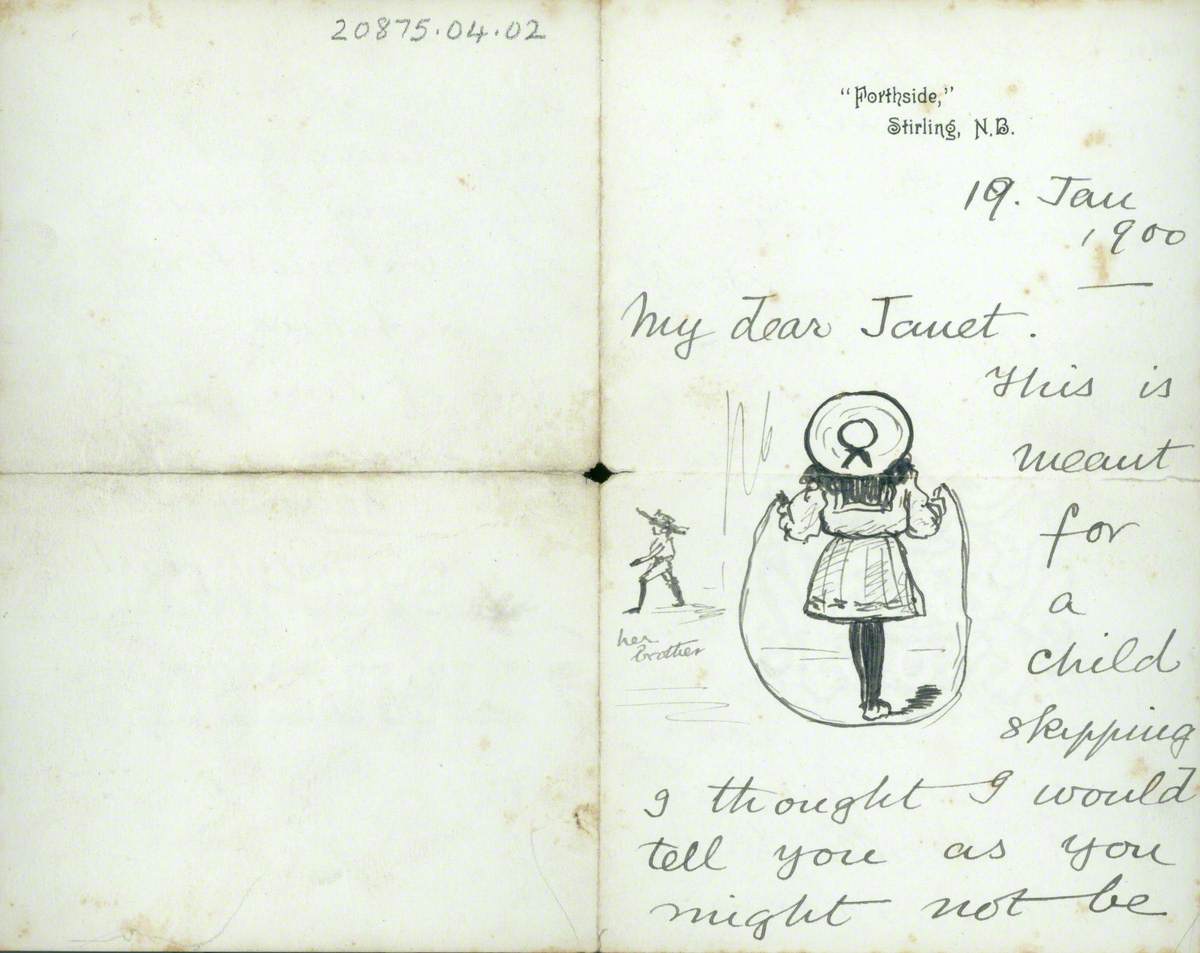 20875.04.02
"Forthside,"
Stirling, N.B.
19. Jan
1900
My dear Janet.
This is
meant
for
a
child
skipping
her
brother
I thought I would
tell you as you
might not be